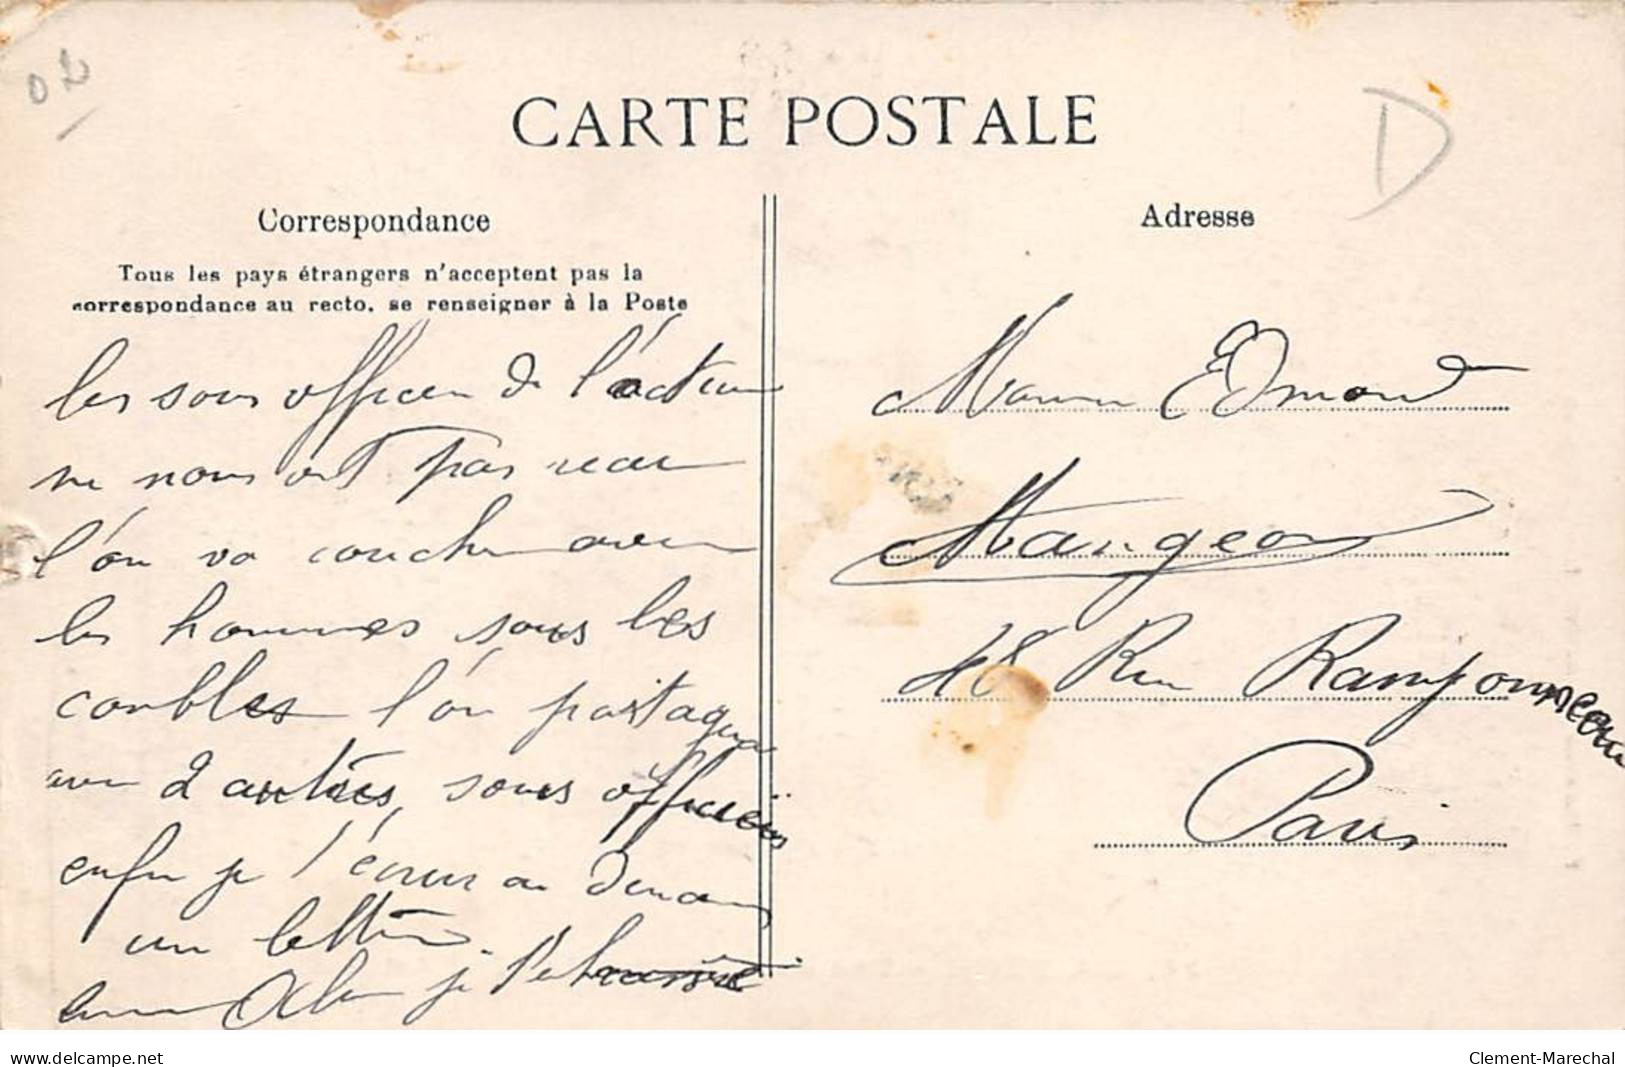 CARTE POSTALE
Correspondance
Tous les pays étrangers n'acceptent pas la
correspondance au recto, se renseigner à la Poste
les sous officiers de l'active
ne nous ont pas
l'on va coucher avec
les hommes sous les
combles l'on partage
avec 2 autres, sous officiers
enfin je t'écrirai demain
un lettre.
je t'embrasse
Adresse
Edmond
Maugeon
48 Rue Ramponneau
Paris
D
www.delcampe.net
Clement-Marechal